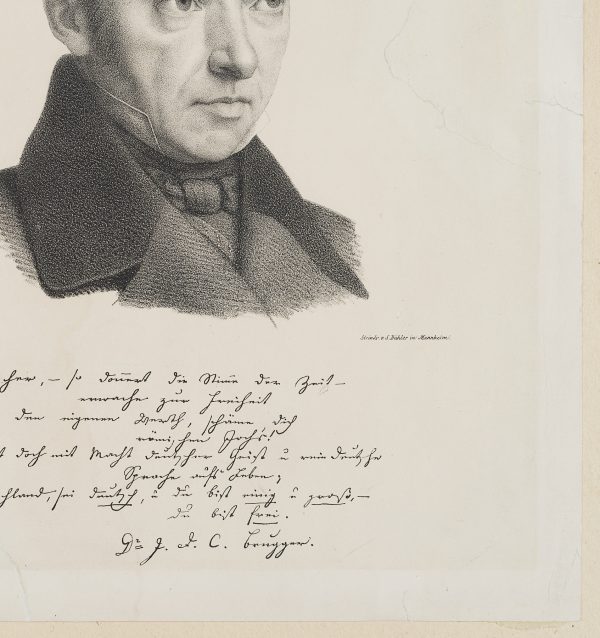 Steindr. v. J. Bühler in Mannheim.
cher, – so donnert die Stimme der Zeit –
erwache zur Freiheit
den eigenen Werth, schäme dich
römischen Jochs!
t doch mit Macht deutscher Geist u rein deutsche
Sprache aufs Leben;
chland, sei deutsch, u du bist einig u groß, –
du bist frei.
Dr. J. D. C. Brugger.